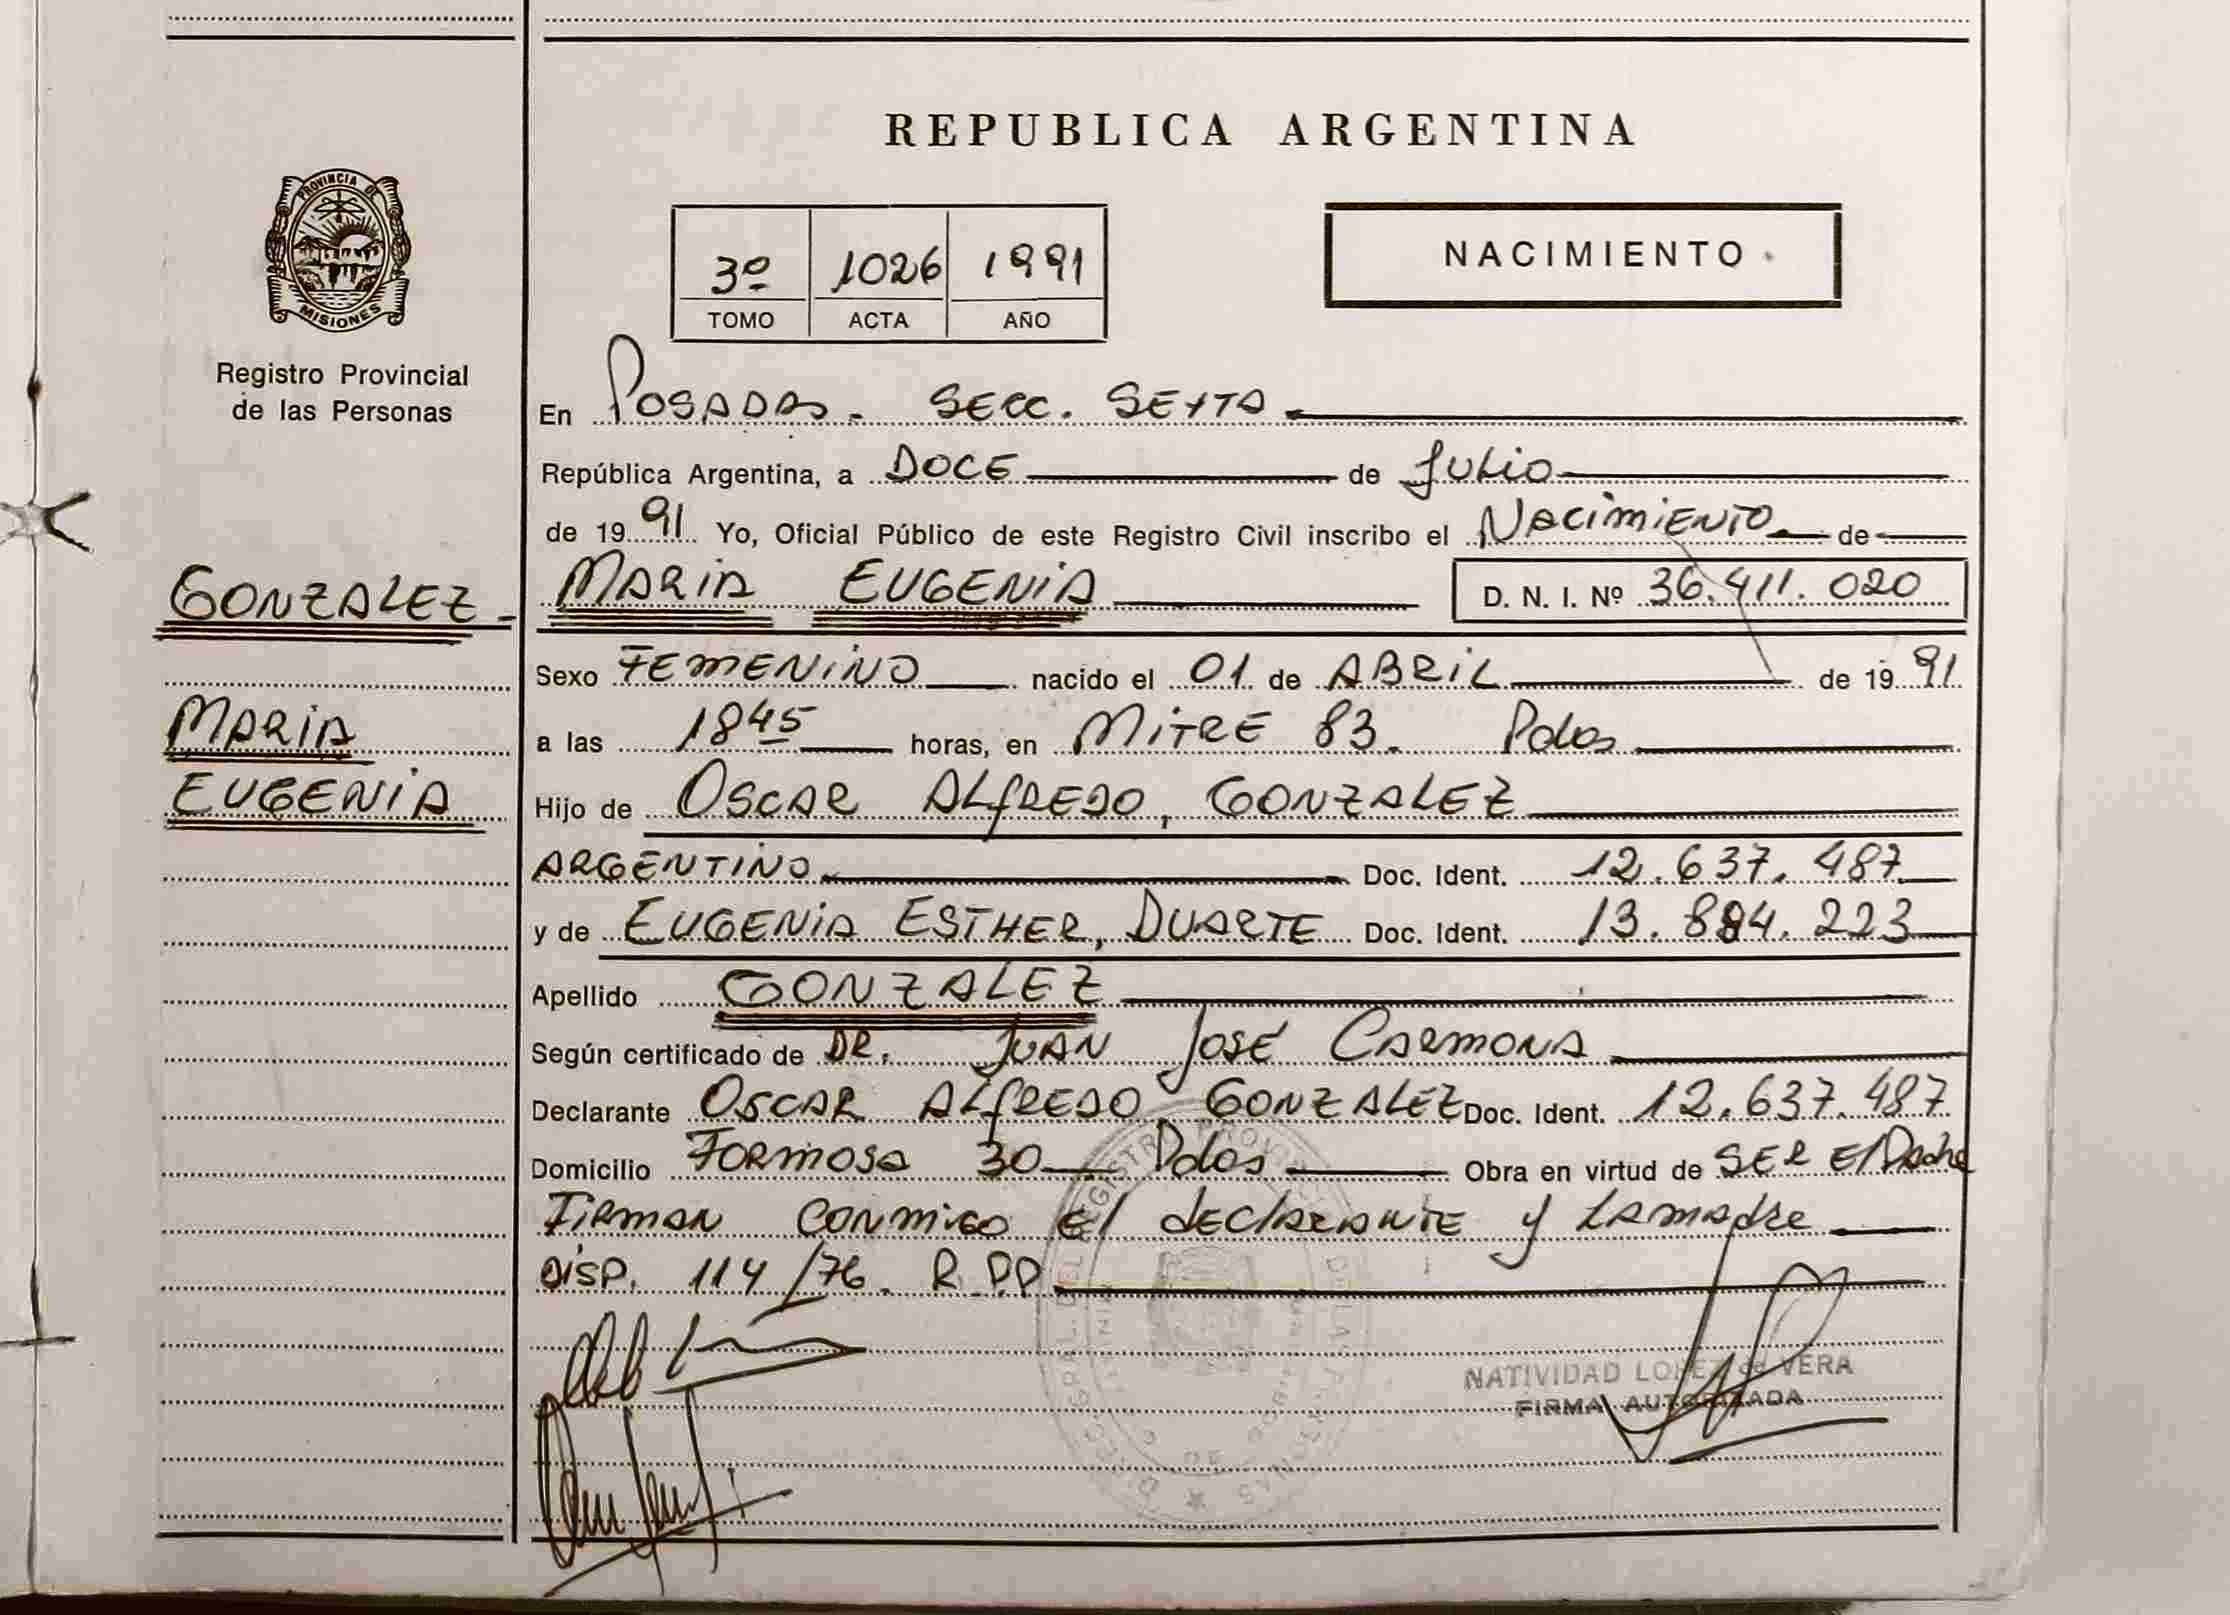 REPUBLICA ARGENTINA
PROVINCIA DE
MISIONES
Registro Provincial
de las Personas
3º 1026 1991
TOMO ACTA AÑO
NACIMIENTO
En Posadas. Secc. Sexta
República Argentina, a DOCE de Julio
de 1991 Yo, Oficial Público de este Registro Civil inscribo el Nacimiento de
GONZALEZ - MARIA EUGENIA D. N. I. Nº 36.411.020
Sexo FEMENINO nacido el 01 de ABRIL de 1991
MARIA
a las 1845 horas, en MITRE 83. Pdas
EUGENIA
Hijo de OSCAR ALFREDO, GONZALEZ
ARGENTINO Doc. Ident. 12.637.487
y de EUGENIA ESTHER, DUARTE Doc. Ident. 13.894.223
Apellido GONZALEZ
Según certificado de DR. JUAN JOSÉ CARMONA
Declarante OSCAR ALFREDO GONZALEZ Doc. Ident. 12.637.487
Domicilio FORMOSA 30 Pdas Obra en virtud de SER El Padre
Firman conmigo El declarante y La madre
DISP. 114/76. R.P.P
NATIVIDAD LOPEZ de VERA
FIRMA AUTORIZADA